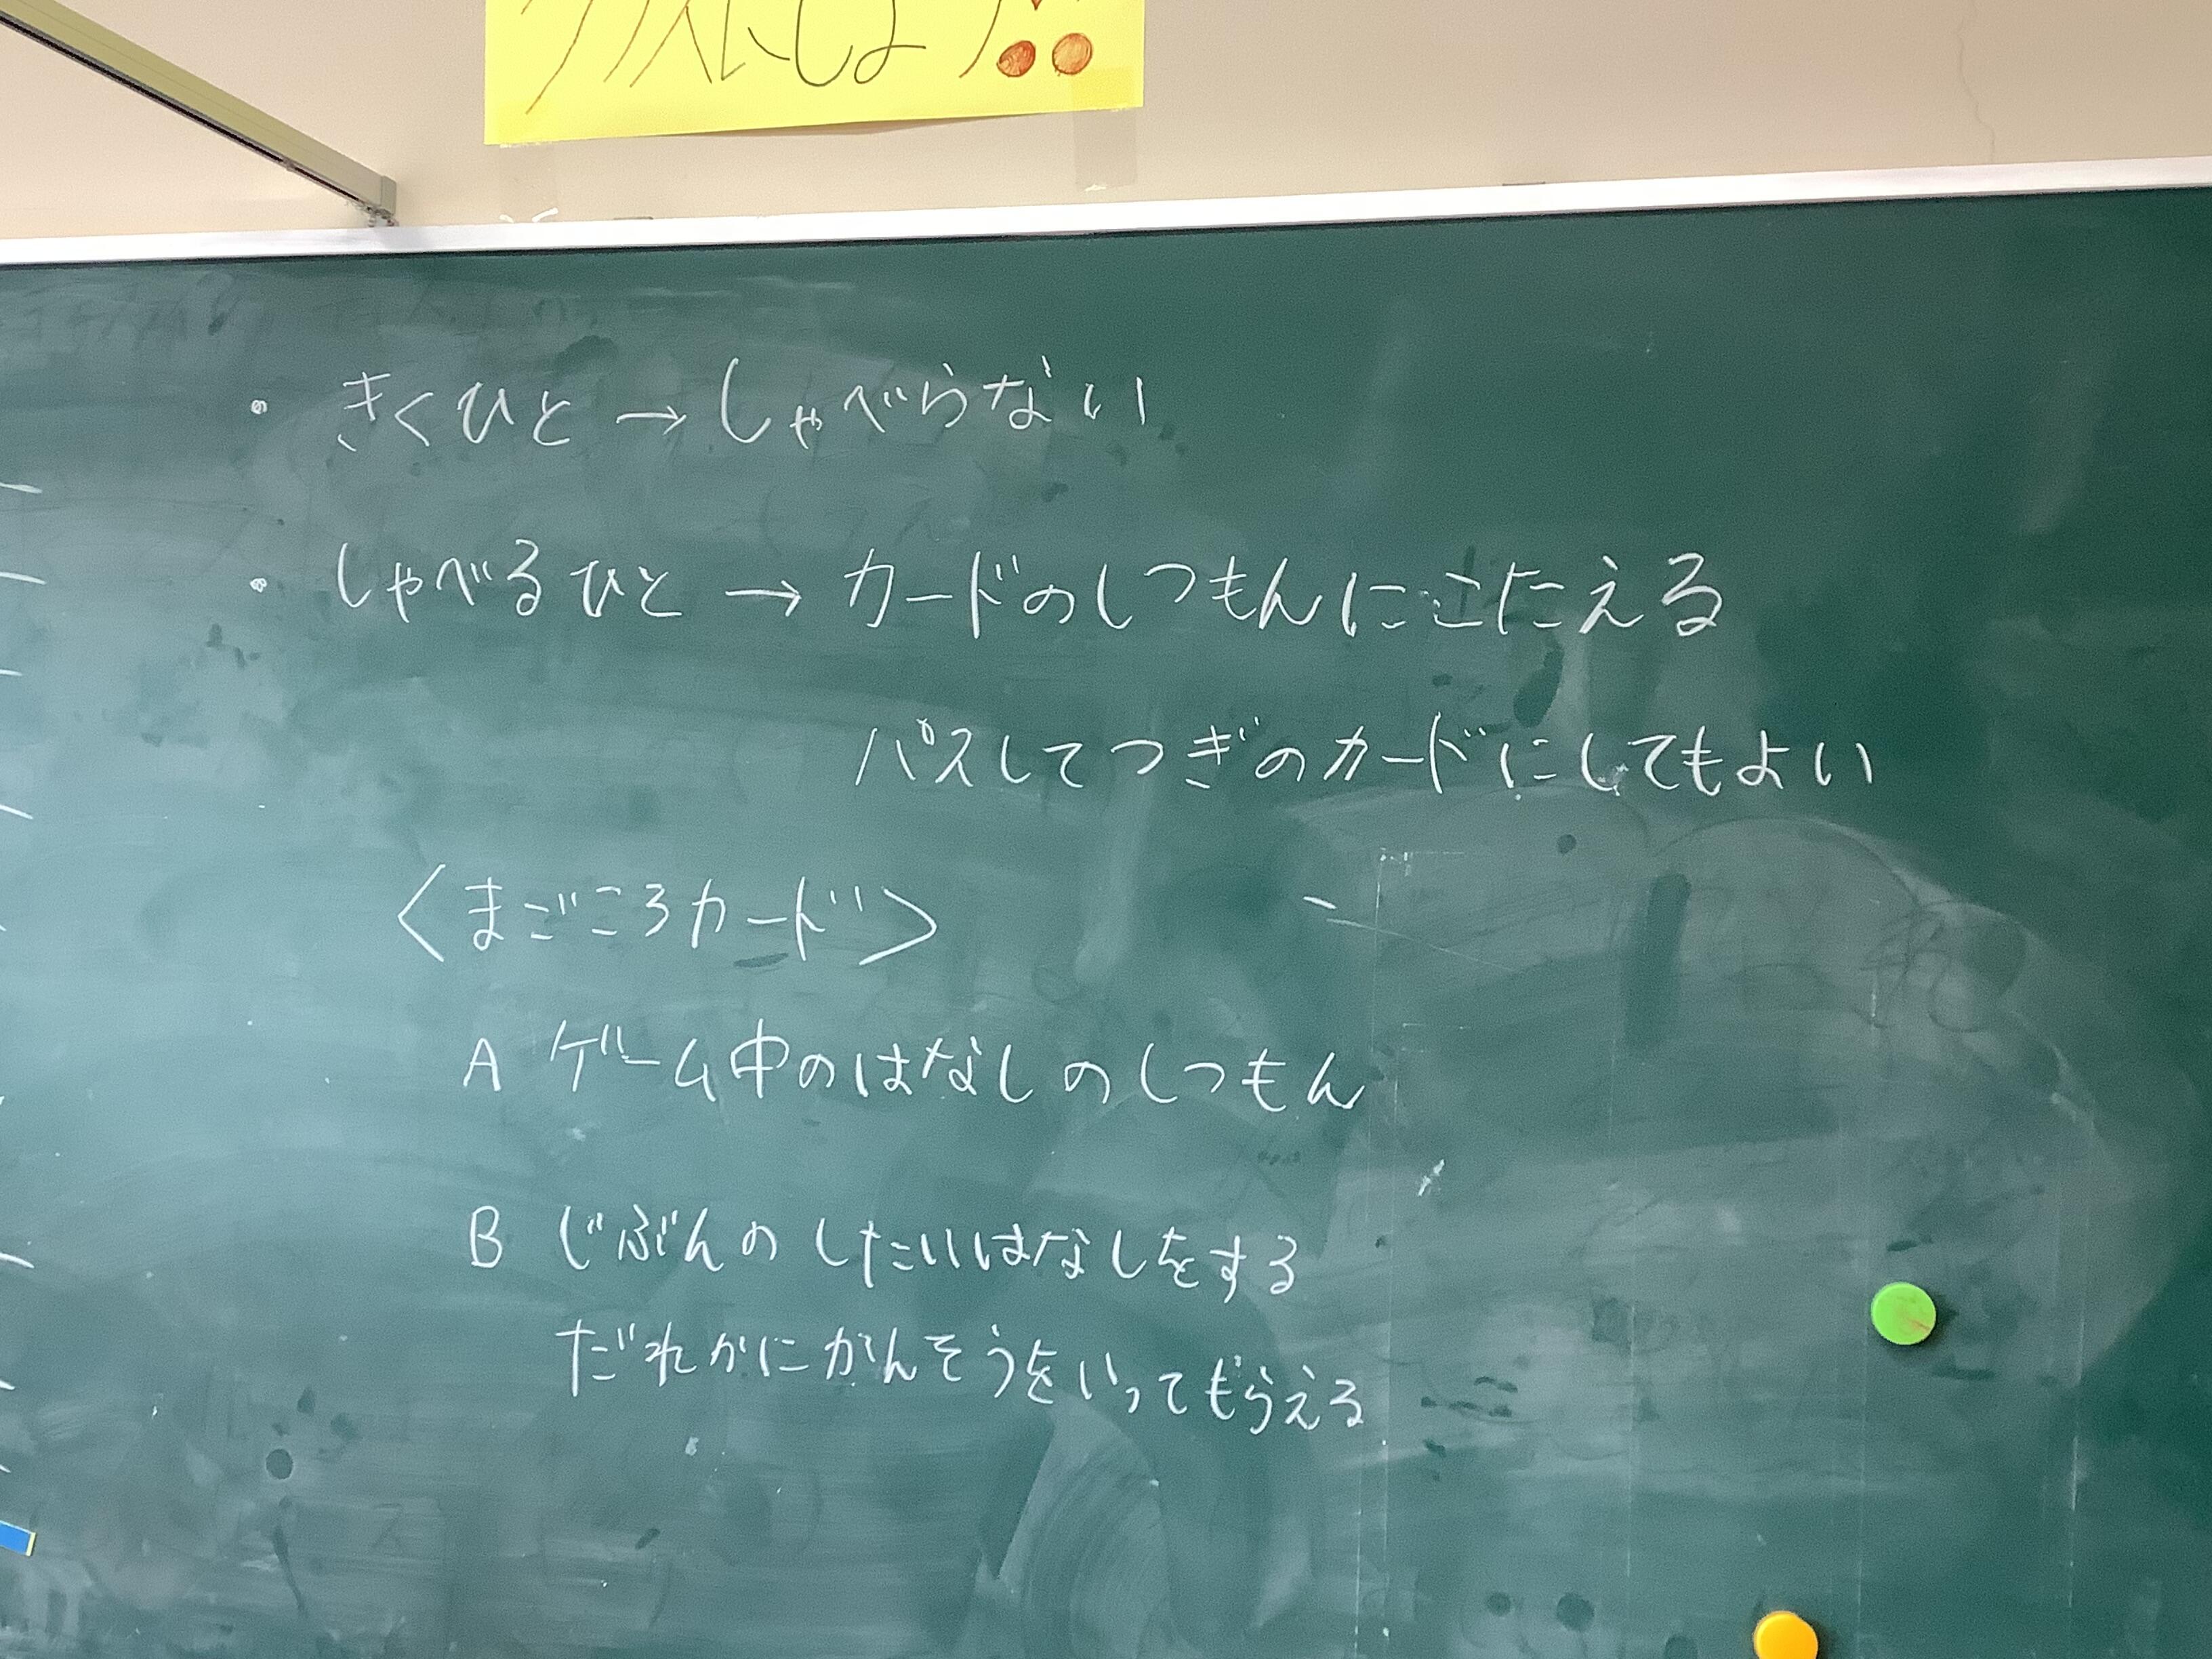 クラスにしよう!!
・きくひと→しゃべらない
・しゃべるひと→カードのしつもんにこたえる
パスしてつぎのカードにしてもよい
〈まごころカード〉
A ゲーム中のはなしのしつもん
B じぶんのしたいはなしをする
だれかにかんそうをいってもらえる